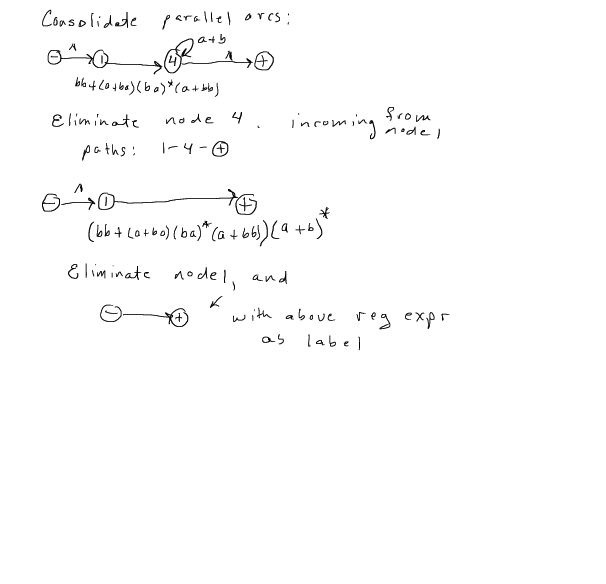 Consolidate parallel arcs:
a+b
Λ Λ
- 1 4 +
bb+(a+ba)(ba)*(a+bb)
Eliminate node 4. incoming from node 1
paths: 1-4-+
Λ
- 1 +
(bb+(a+ba)(ba)*(a+bb))(a+b)*
Eliminate node 1, and
- + with above reg expr
as label